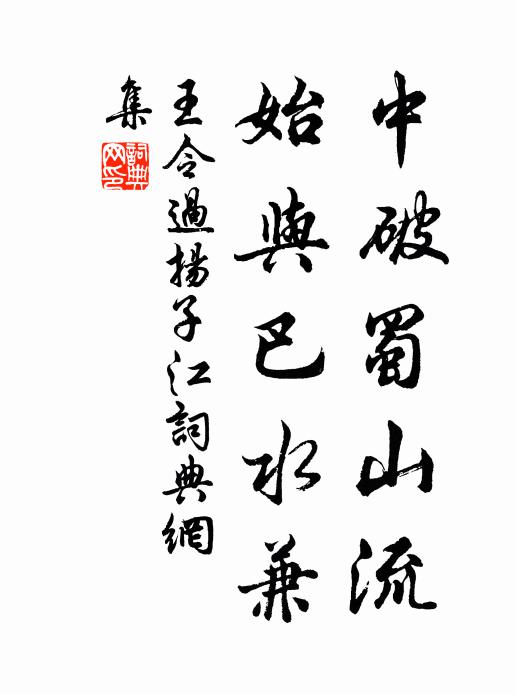 中破蜀山流
始與巴水兼
王令過揚子江詞典網
集
詞典
网印